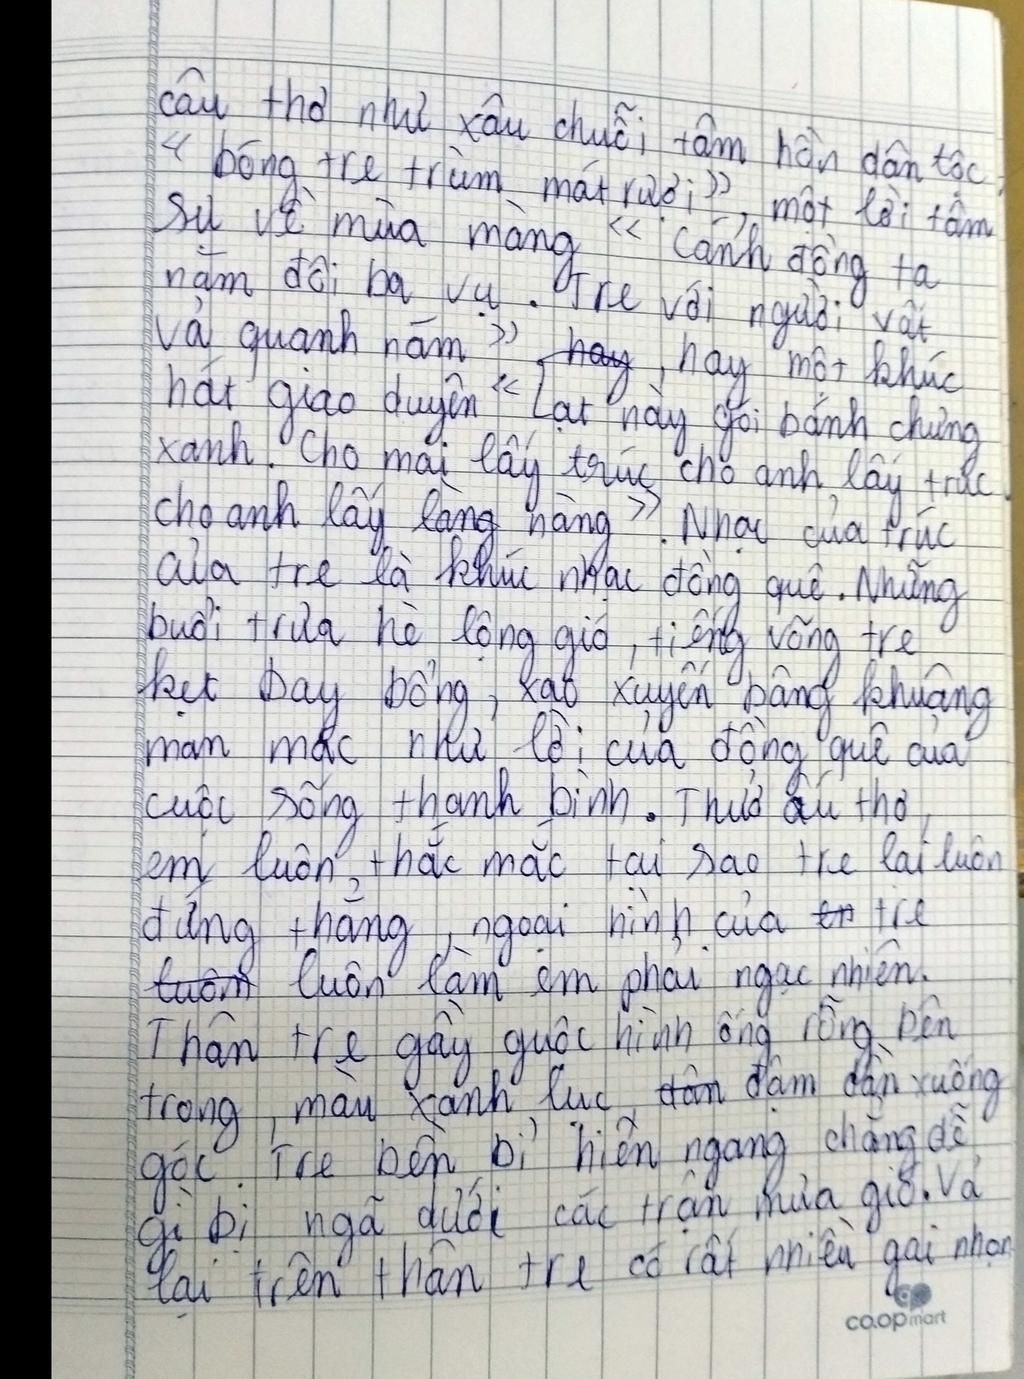 câu thơ như xâu chuỗi tâm hồn dân tộc
“ bóng tre trùm mát rượi ”, một lời tâm
sự về mùa màng “ Cánh đồng ta
năm đôi ba vụ. Tre với người vất
vả quanh năm ” hay, hay một khúc
hát giao duyên “ Lạt này gói bánh chưng
xanh. Cho mai lấy trúc cho anh lấy trúc
cho anh lấy làng nàng ”. Nhạc của trúc
của tre là khúc nhạc đồng quê. Những
buổi trưa hè lộng gió, tiếng võng tre
kẹt bay bổng, xao xuyến bâng khuâng
man mác như lời của đồng quê của
cuộc sống thanh bình. Thuở ấu thơ,
em luôn thắc mắc tại sao tre lại luôn
đứng thẳng, ngoại hình của tr tre
luôn luôn làm em phải ngạc nhiên.
Thân tre gầy guộc hình ống rỗng bên
trong, màu xanh lục, đậm dần xuống
gốc. Tre bền bỉ hiên ngang chẳng dễ
gì bị ngã dưới các trận mưa gió. Vả
lại trên thân tre có rất nhiều gai nhọn
co.opmart